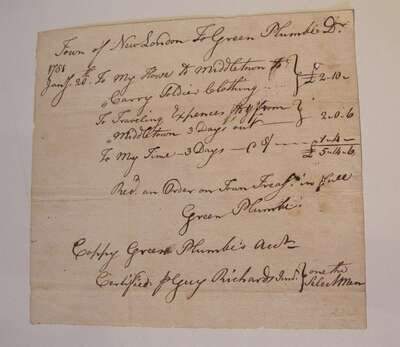 Town of New London To Green Plumbe Dr
1781
Jany. 20th To My Horse to Middletown to } £ 2-10-
Carry Soldier Clothing ..
To Traveling Expences to & from } 2-0-6
Middletown 3 Days out
To My Time 3 Days @ 8/ 1-4-
£ 5-14-6
Recd an Order on Town Treasr in full
Green Plumbe
Coppy Green Plumbe's Acct
Certified pr Guy Richards Junr } one the Select Men